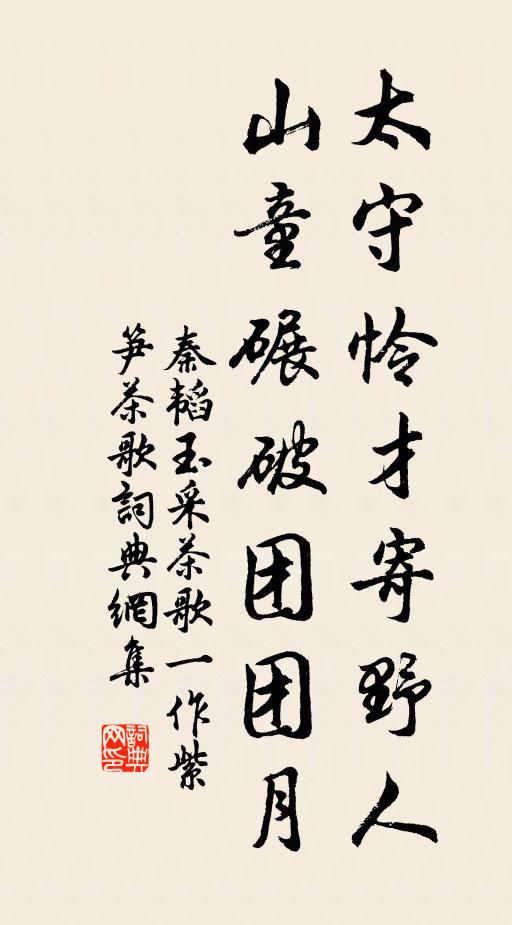 太守怜才寄野人
山童碾破团团月
秦韬玉采茶歌一作紫
笋茶歌詞典網集
詞典网印